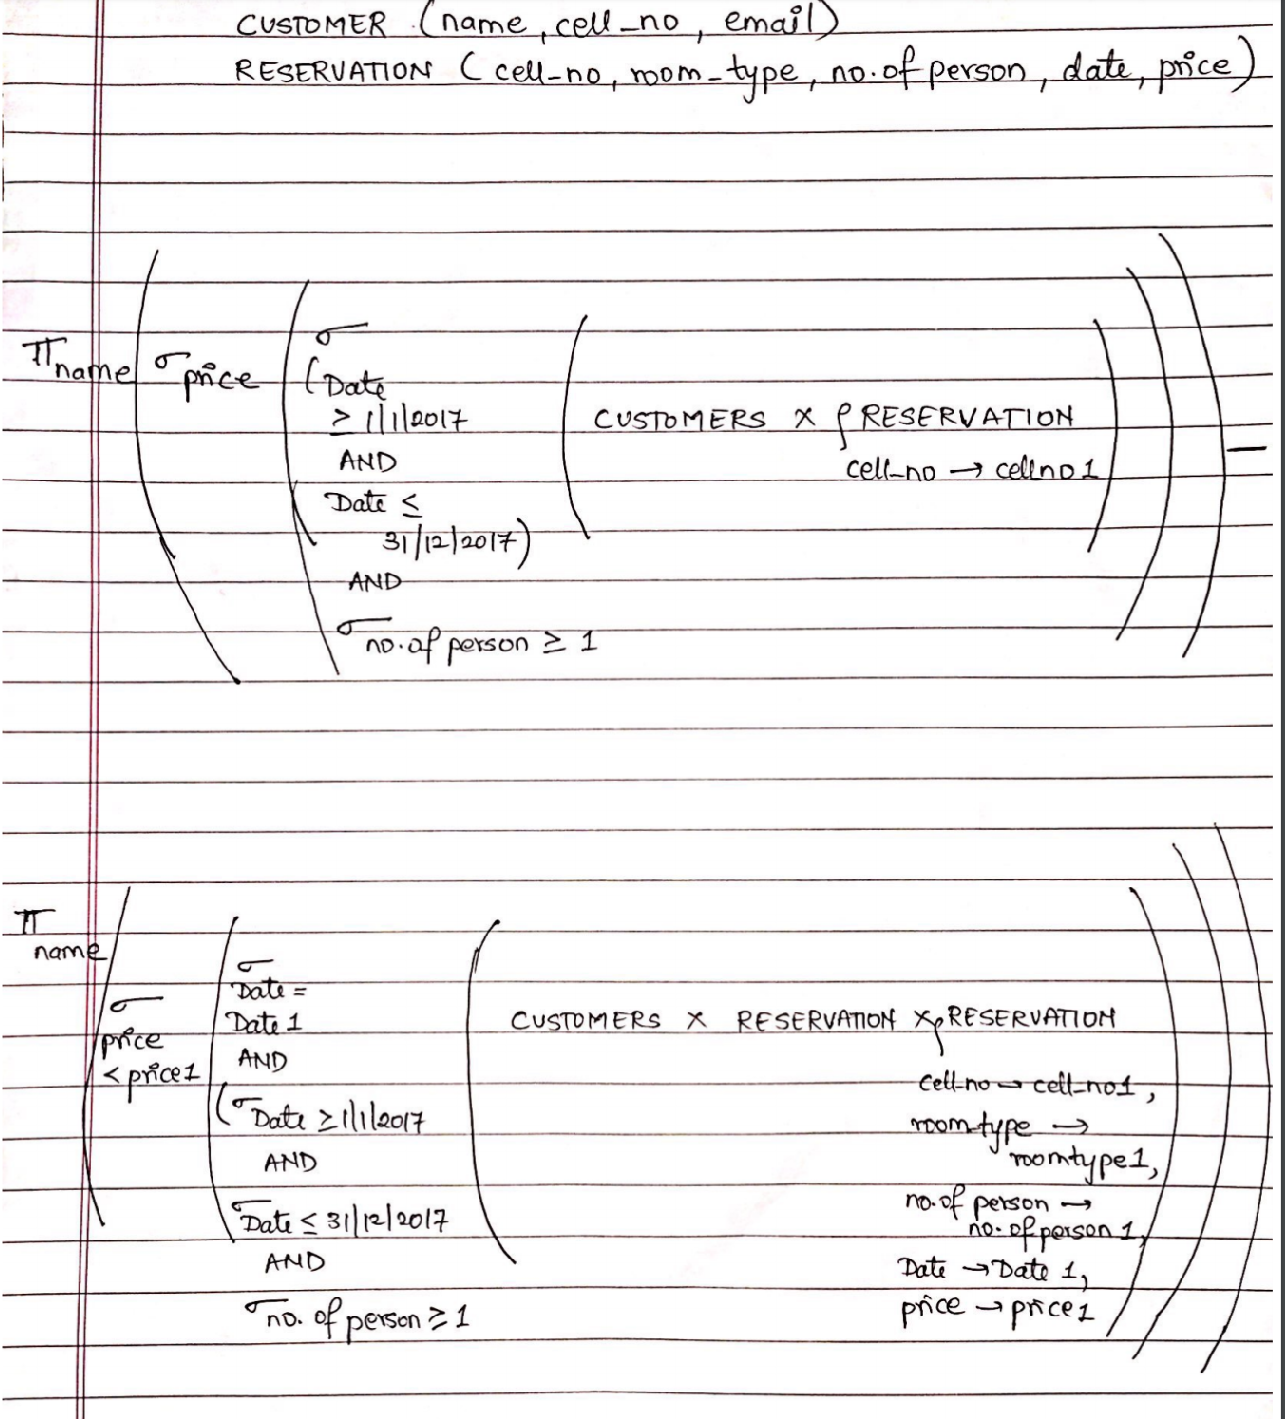 CUSTOMER (name, cell_no, email)
RESERVATION (cell-no, room-type, no.of person, date, price)
π name ( σ price ( σ (Date ≥ 1/1/2017 AND Date ≤ 31/12/2017) AND σ no.of person ≥ 1 ( CUSTOMERS X ρ RESERVATION
cell-no → cellno1 ) ) ) —
π name ( σ price < price1 ( σ Date = Date 1 AND ( σ Date ≥ 1/1/2017 AND σ Date ≤ 31/12/2017 AND σ no. of person ≥ 1 ( CUSTOMERS X RESERVATION X ρ RESERVATION
cell-no → cell-no1,
room-type →
roomtype1,
no.of person →
no. of person 1,
Date → Date 1,
price → price1 ) ) )